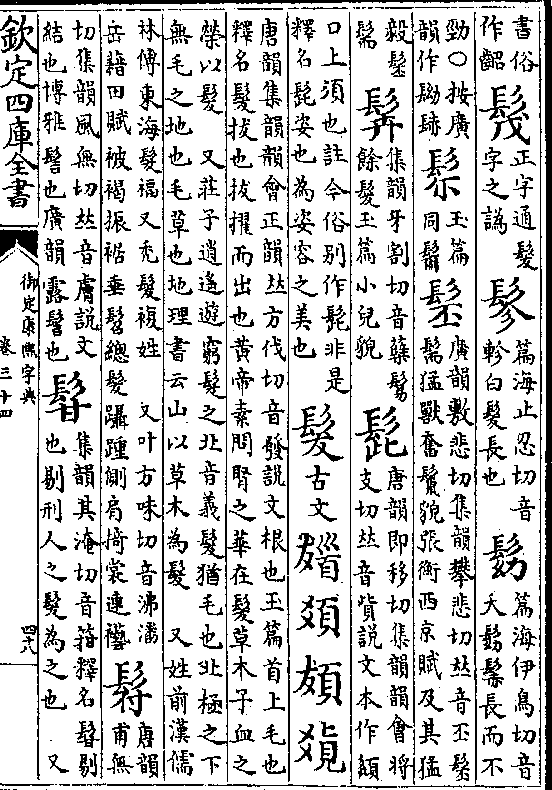 書俗
作齠
正字通髮
字之譌
篇海止忍切音
軫白髮長也
篇海伊鳥切音
夭長而不
勁○按廣
韻作
玉篇
同
髬
廣韻敷悲切集韻攀悲切𠀤音丕髬
髵猛獸奮鬣貌張衡西京賦及其猛
毅髬
髵
集韻牙割切音
餘髮玉篇小兒貌
髭
唐韻即移切集韻韻會將
支切𠀤音貲說文本作頾
口上須也註今俗別作髭非是
釋名髭姿也為姿容之美也
髮
古文
唐韻集韻韻會正韻𠀤方伐切音發說文根也玉篇首上毛也
釋名髮拔也拔擢而出也黃帝素問腎之華在髮草木子血之
榮以髮 又莊子逍遙遊窮髮之北音義髮猶毛也北極之下
無毛之地也毛草也地理書云山以草木為髮 又姓前漢儒
林傳東海髮福又禿髮複姓 又叶方味切音沸潘
岳藉田賦被褐振裾垂髫總髮躡踵側肩掎裳連
唐韻
甫無
切集韻風無切𠀤音膚說文
結也博雅髻也廣韻露髻也
集韻其淹切音箝釋名剔
也剔刑人之髮為之也 又
欽定四庫全書
御定康熙字典
卷三十四
四八